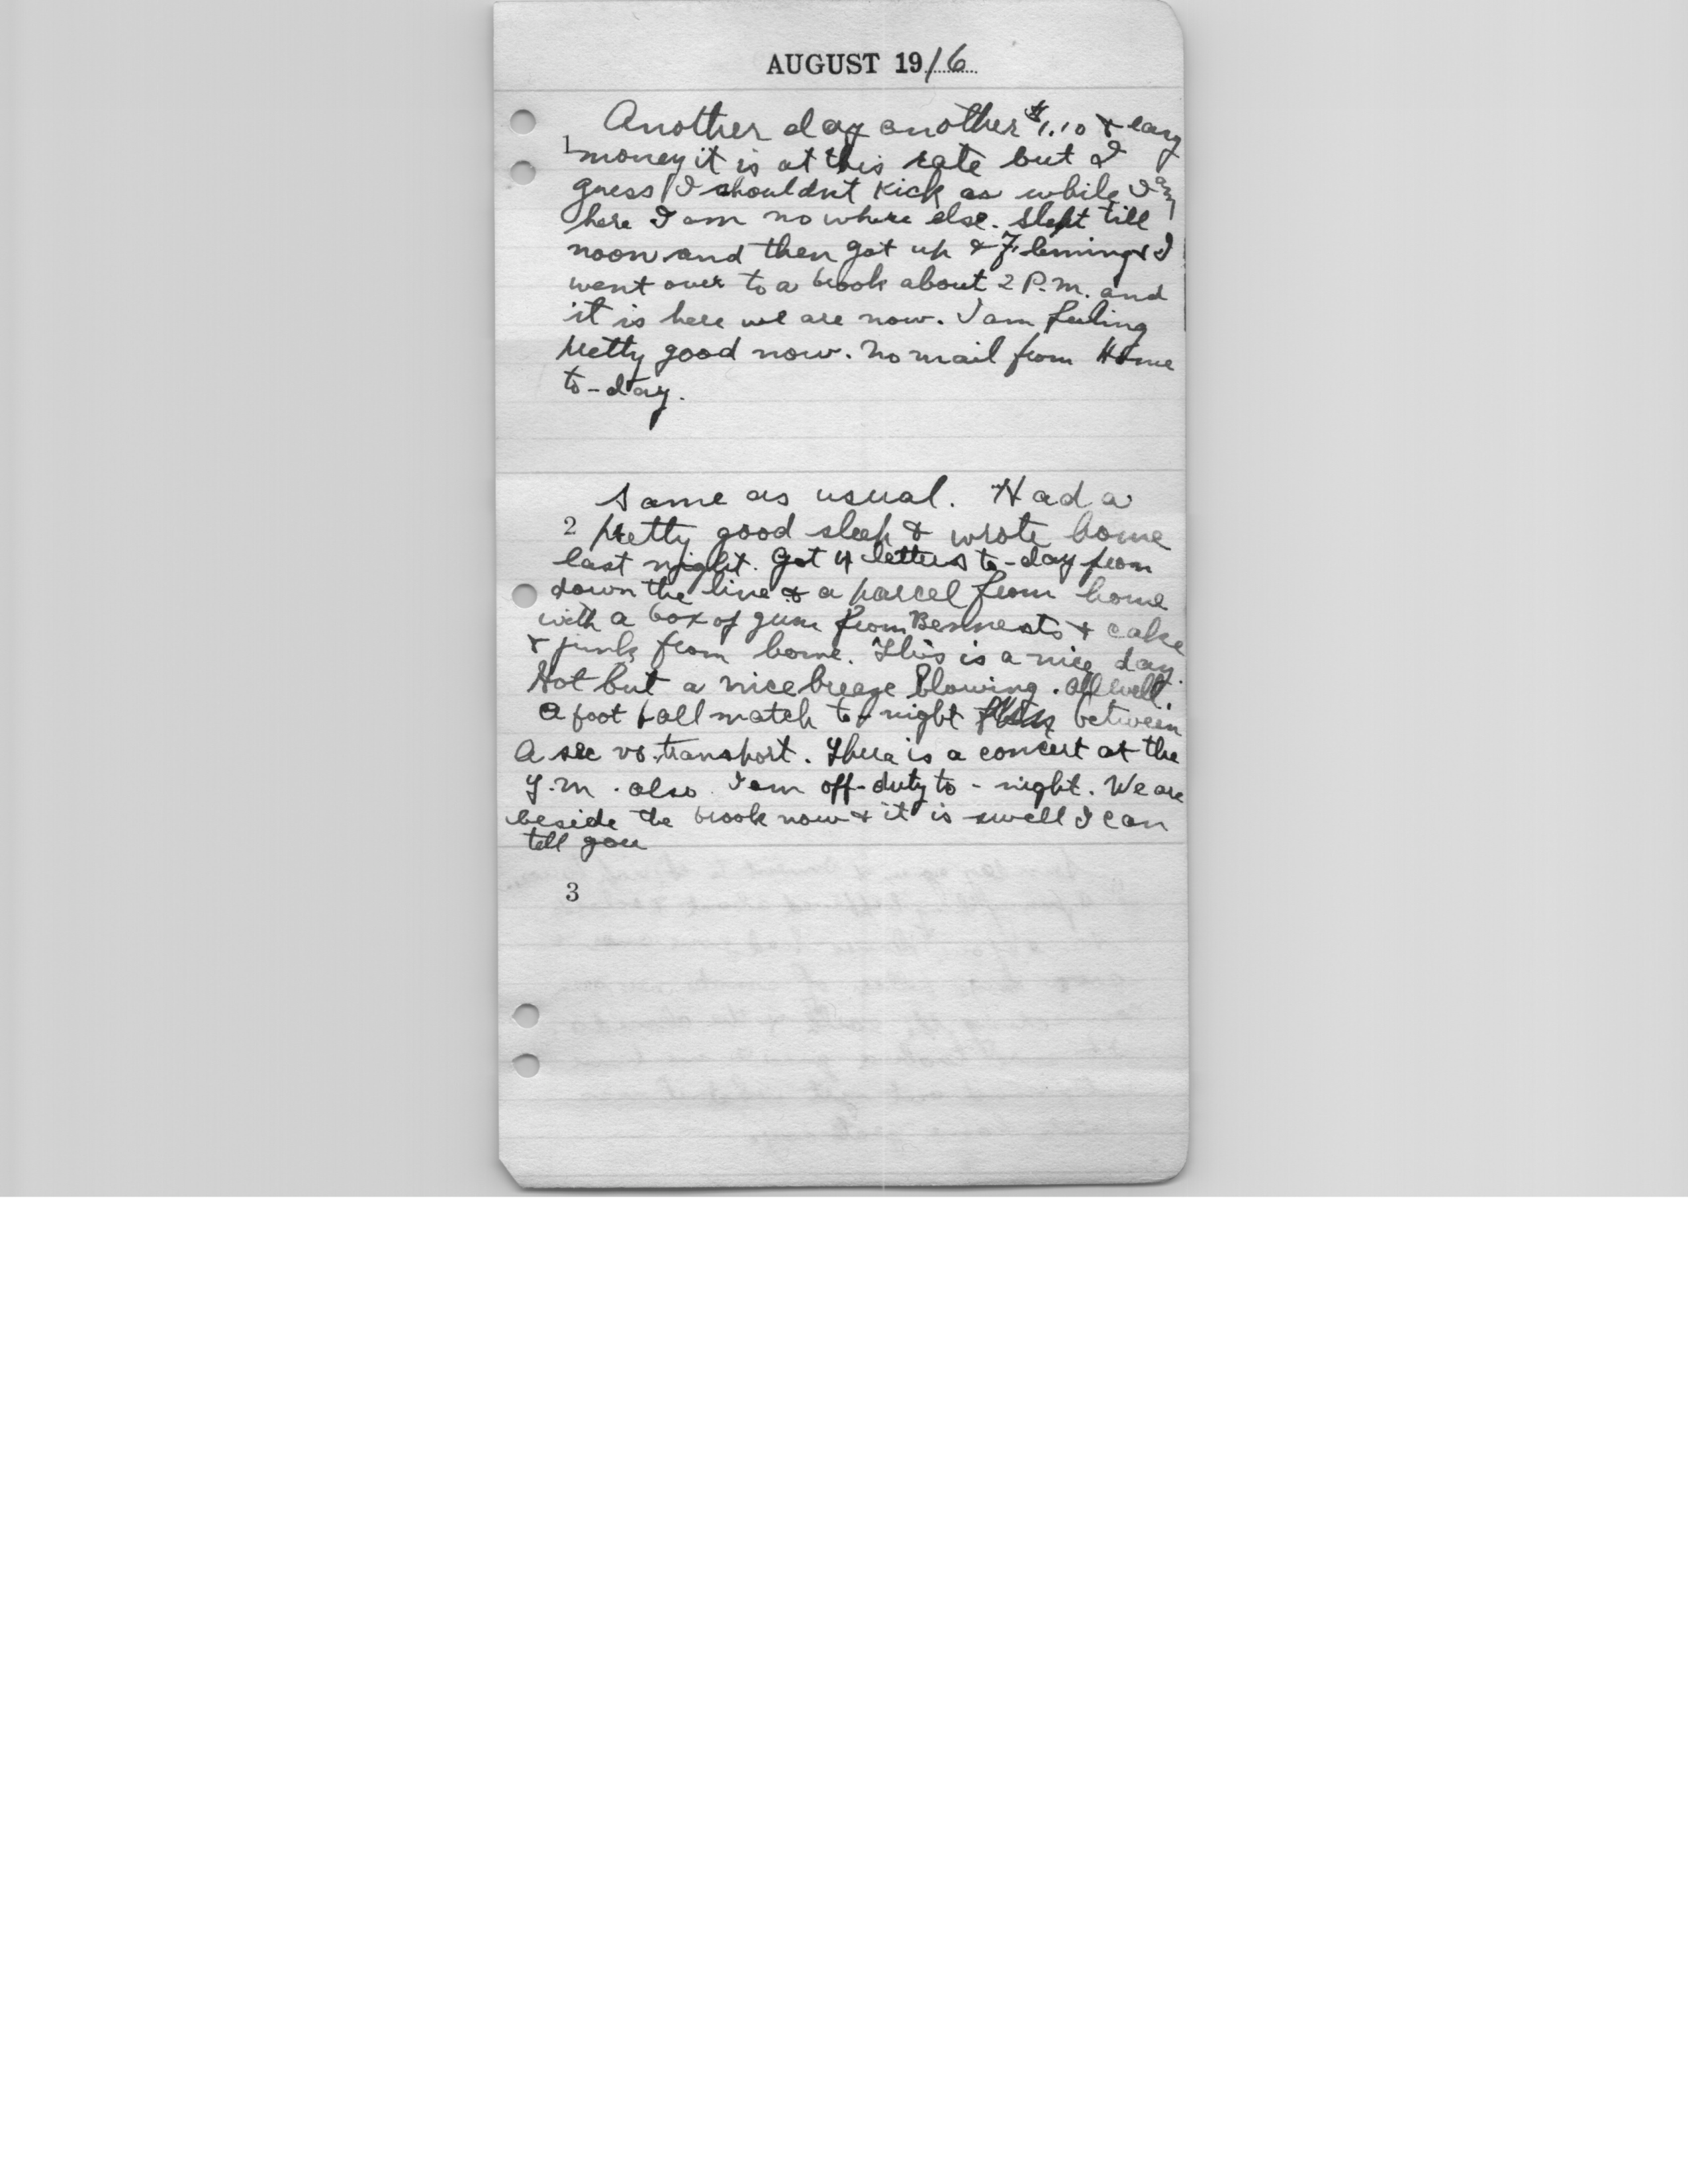 AUGUST 1916
Another day another $1.10 & easy
1 money it is at this rate but I
guess I shouldnt kick as while I am
here I am no where else. Slept till
noon and then got up & Fleming & I
went over to a brook about 2 P.M. and
it is here we are now. I am feeling
pretty good now. No mail from Home
to-day.
Same as usual. Had a
2 pretty good sleep & wrote home
last night. Got 4 letters to-day from
down the line & a parcel from home
with a box of gum from Bennests & cake
& junk from home. This is a nice day.
Hot but a nice breeze blowing. All well.
A foot ball match to-night between
A sec vs. transport. There is a concert at the
Y.M. also. I am off-duty to-night. We are
beside the brook now & it is swell I can
tell you
3